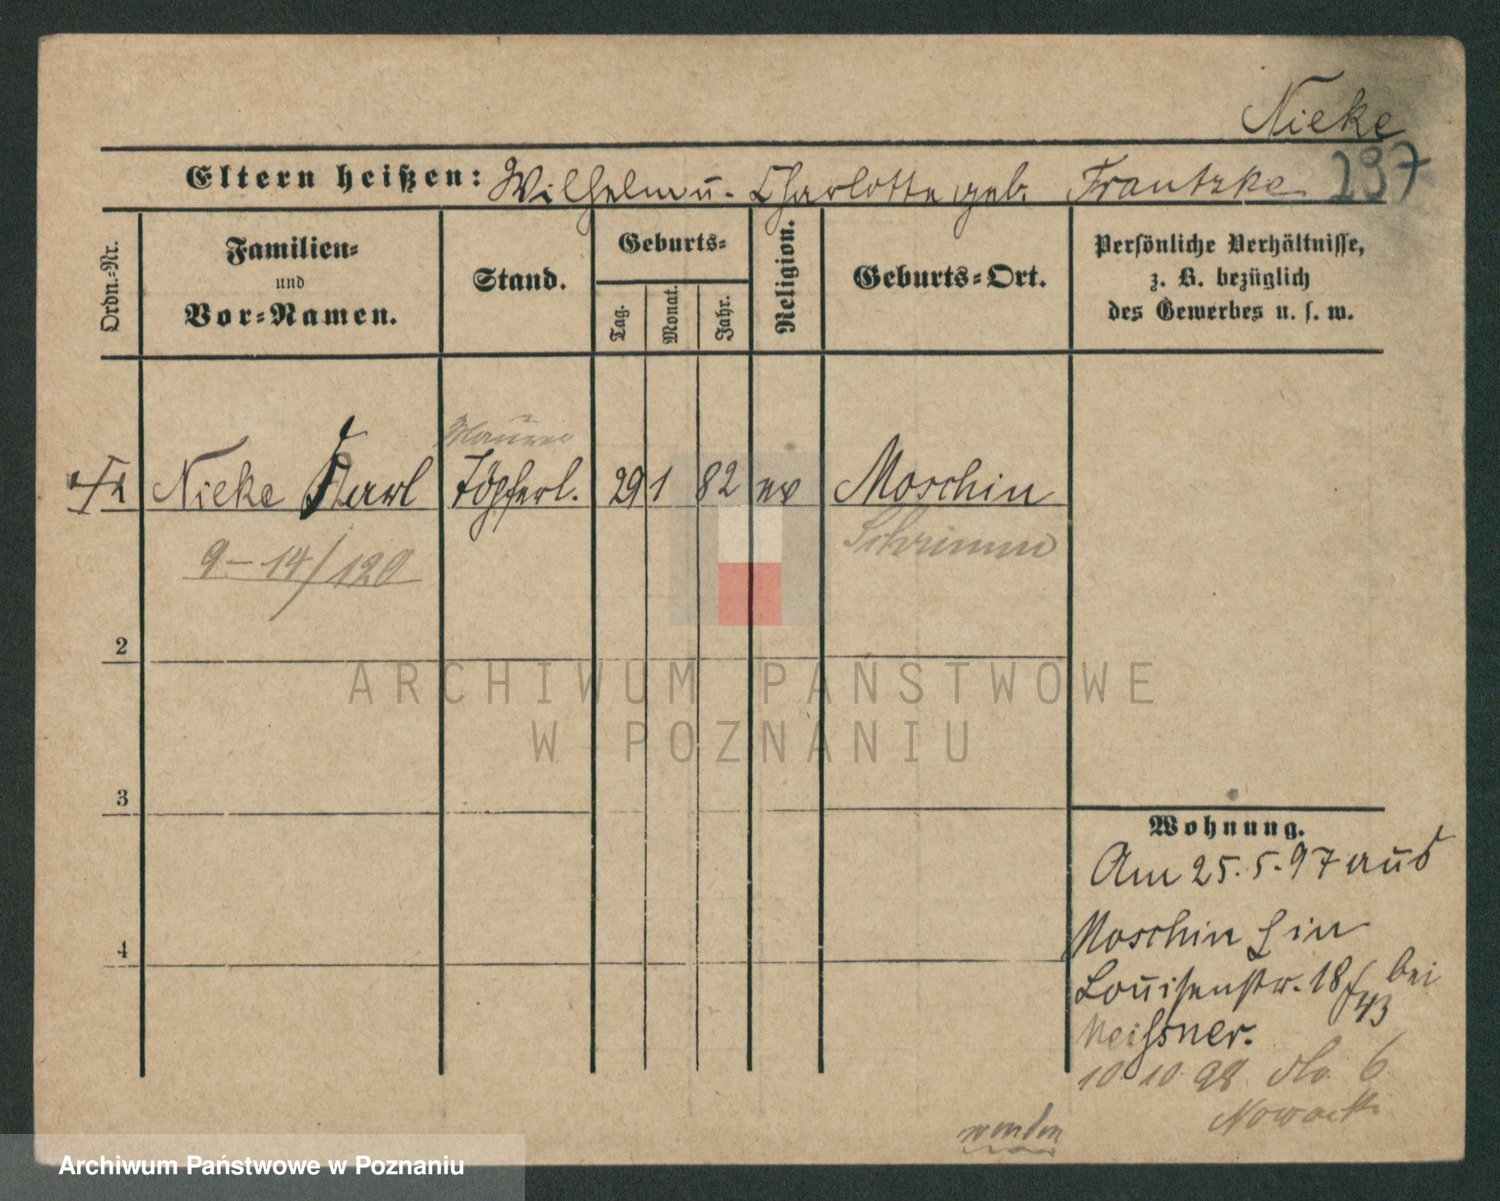 Nieke
237
Eltern heißen: Wilhelm u. Charlotte geb. Frantzke
Ordn.-Nr.
Familien-
und
Vor-Namen.
Stand.
Geburts-
Tag.
Monat.
Jahr.
Religion.
Geburts-Ort.
Persönliche Verhältnisse,
z. B. bezüglich
des Gewerbes u. s. w.
Maurer
Nieke Karl Töpferl. 29 1 82 ev Moschin
Schrimm
9-14/120
2
ARCHIWUM PAŃSTWOWE
W POZNANIU
3
4
Wohnung.
Am 25.5.97 aus
Moschin hin
Louisenstr. 18 bei
43
Meißner.
10 10 98 6
Nowack
wenden
Archiwum Państwowe w Poznaniu